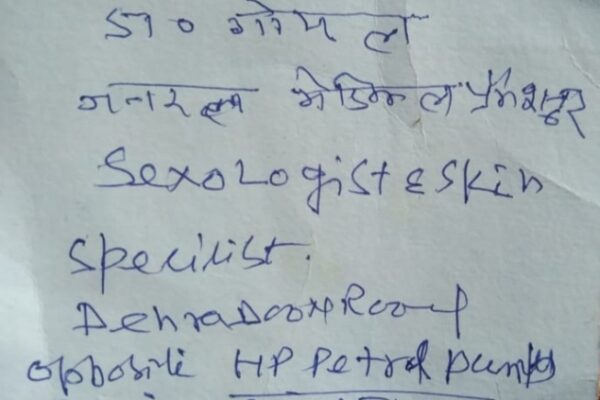 डा० गोयल
जनरल मेडिकल
Sexologist & Skin
Specilist.
DehraDoon Road
opposite HP Petrol Pump